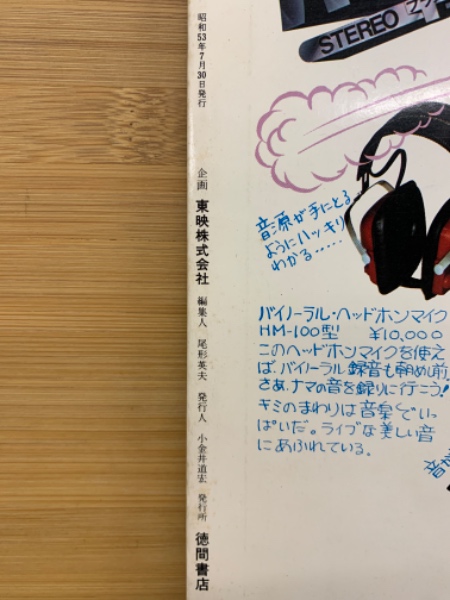 昭和53年7月30日発行 企画 東映株式会社 編集人 尾形英夫 発行人 小金井道宏 発行所 徳間書店
STEREO
音源が手にとる
ようにハッキリ
わかる……
バイノーラル・ヘッドホンマイク
HM-100型 ¥10,000
このヘッドホンマイクを使え
ば、バイノーラル録音も朝めし前
さあ、ナマの音を録りに行こう!
キミのまわりは音楽でいっ
ぱいだ。ライブな美しい音
にあふれている。